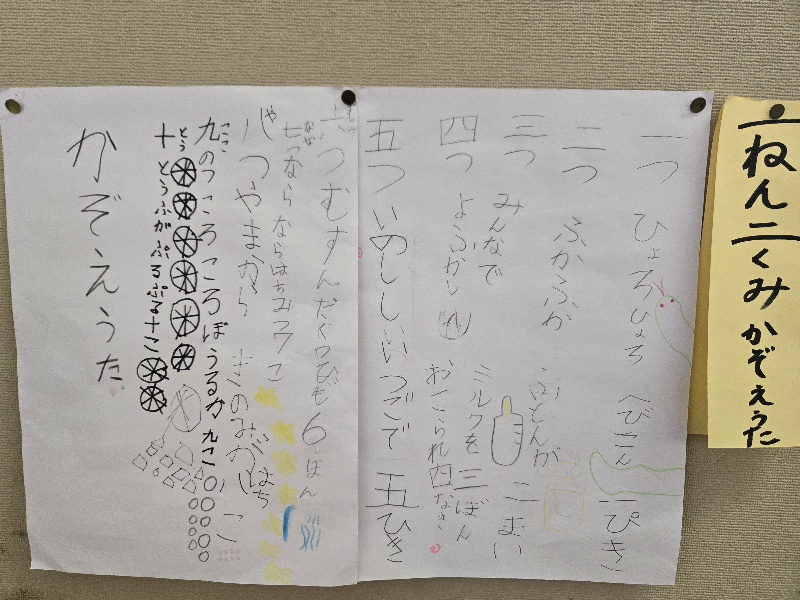 一ねん二くみかぞえうた
一つ ひょろひょろ へびさん 一ぴき
二つ ふかふか ふとんが 二まい
三つ みんなで ミルクを 三ぼん
四つ よふかし おこられ 四なき
五つ いのししいつごで 五ひき
六つ むすんだ 6ぽん
七つならならはちみつ こ
八つやまから きのみが はち こ
九のつころころぼうるが 九こ
十 とうふがぷるぷる十こ
かぞえうた